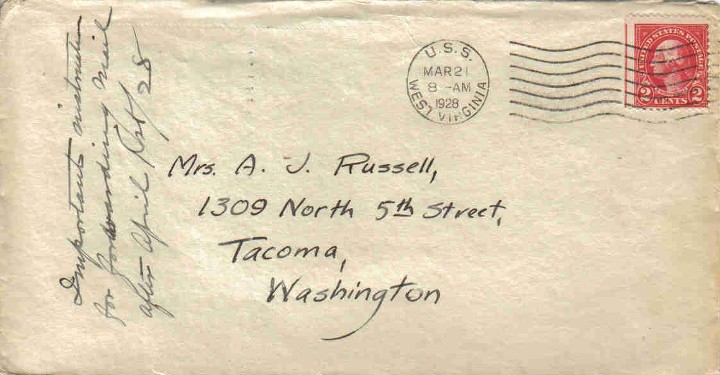 U.S.S.
MAR 21
8 - AM
1928
WEST VIRGINIA
UNITED STATES POSTAGE
2 CENTS 2
Mrs. A. J. Russell,
1309 North 5th Street,
Tacoma,
Washington
Important instruction
for forwarding mail
after April 1st/28